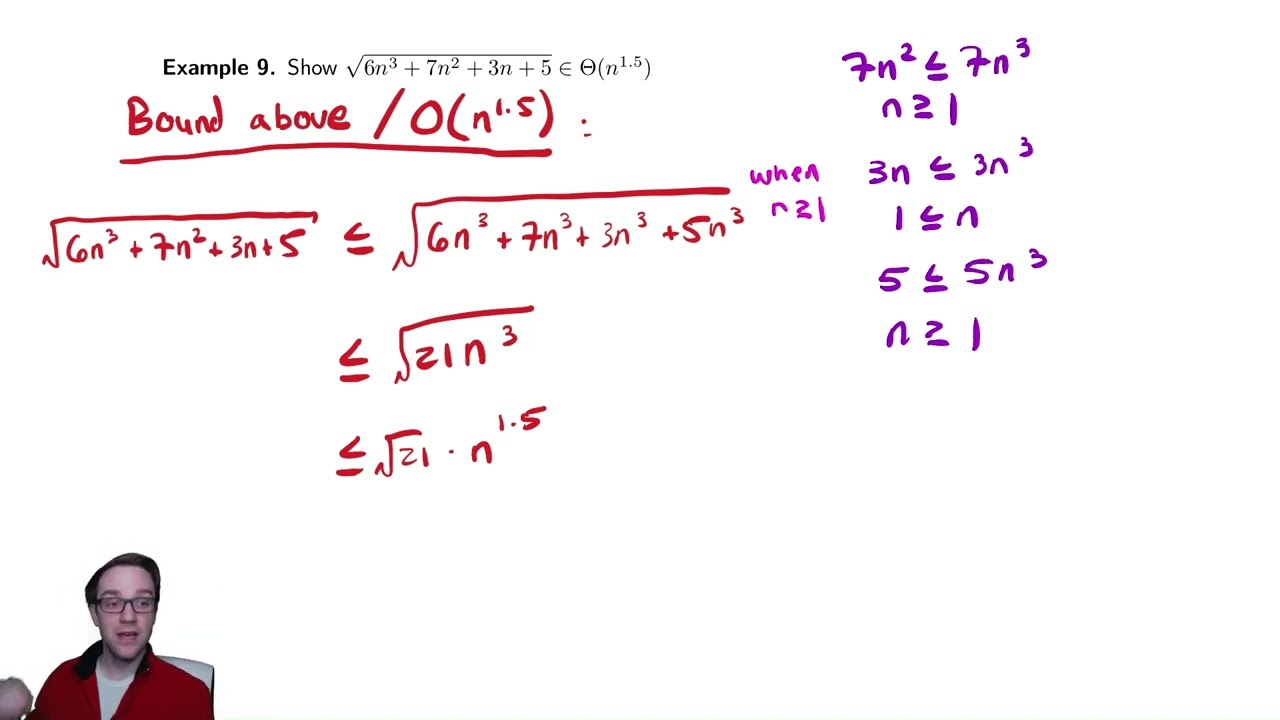 Example 9. Show √(6n³ + 7n² + 3n + 5) ∈ Θ(n^1.5)
Bound above / O(n^1.5) :
√(6n³ + 7n² + 3n + 5) ≤ √(6n³ + 7n³ + 3n³ + 5n³)
when
n ≥ 1
≤ √(21n³)
≤ √21 · n^1.5
7n² ≤ 7n³
n ≥ 1
3n ≤ 3n³
1 ≤ n
5 ≤ 5n³
n ≥ 1